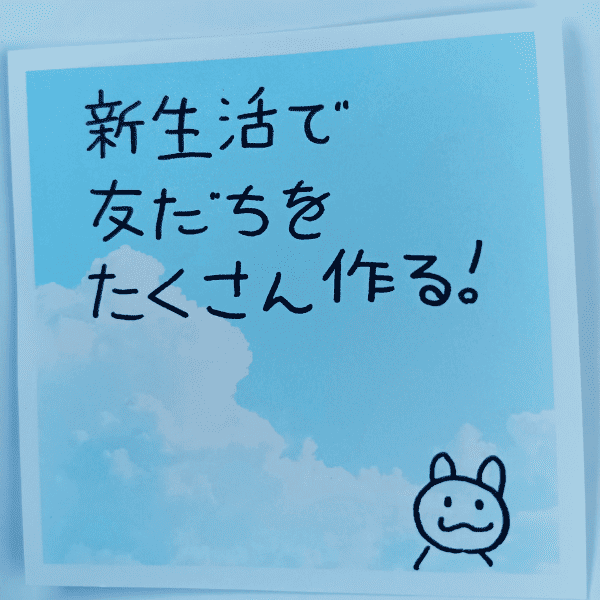 新生活で
友だちを
たくさん作る!